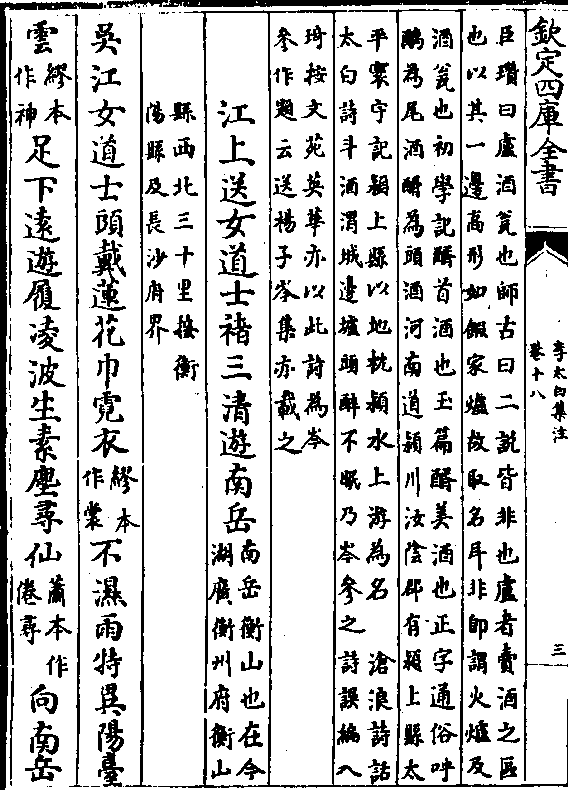 欽定四庫全書
李太白集注
卷十八
三
臣瓚曰盧酒瓮也師古曰二說皆非也盧者賣酒之區
也以其一邊高形如鍛家爐故取名耳非即謂火爐及
酒瓮也初學記醑首酒也玉篇醑美酒也正字通俗呼
醨為尾酒醑為頭酒河南道潁川汝陰郡有潁上縣太
平寰宇記潁上縣以地枕潁水上游為名　滄浪詩話
太白詩斗酒渭城邊壚頭醉不眠乃岑參之詩誤編入
琦按文苑英華亦以此詩為岑
參作題云送楊子岑集亦載之
江上送女道士褚三清遊南岳南岳衡山也在今湖廣衡州府衡山
縣西北三十里接衡
陽縣及長沙府界
吳江女道士頭戴蓮花巾霓衣繆本作裳不濕雨特異陽臺
雲繆本作神足下遠遊履凌波生素塵尋仙蕭本作倦尋向南岳